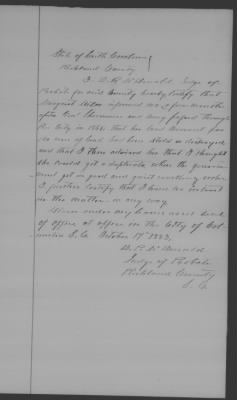 State of South Carolina }
Richland County
I D. B. McDonald Judge of
Probate for said County hereby certify that
Margaret informed me a few months
after Genl Sherman and army passed through
the City in 1865, that her land warrant for
land had been stolen or destroyed
and that I then advised her that I thought
she could get a duplicate when the govern-
ment got in good and quiet working order
I further certify that I have no interest
in the matter in any way
Given under my hand and seal
of office at office in the City of Col-
umbia S.C. October 19th 1883,
Judge of Probate
Richland County
S. C.